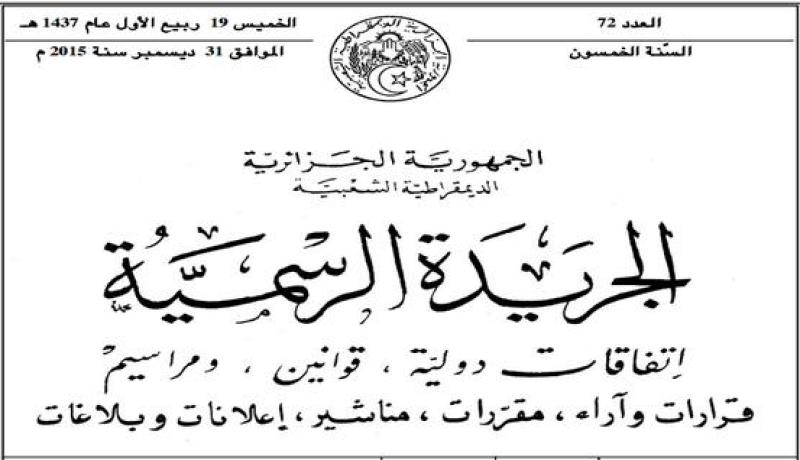 العدد 72
السّنة الخمسون
الخميس 19 ربيع الأول عام 1437 هـ
الموافق 31 ديسمبر سنة 2015 م
الجمهورية الجزائرية
الديمقراطية الشعبية
الجريدة الرسمية
إتفاقات دولية ، قوانين ، ومراسيم
قرارات وآراء ، مقررات ، مناشير ، إعلانات وبلاغات